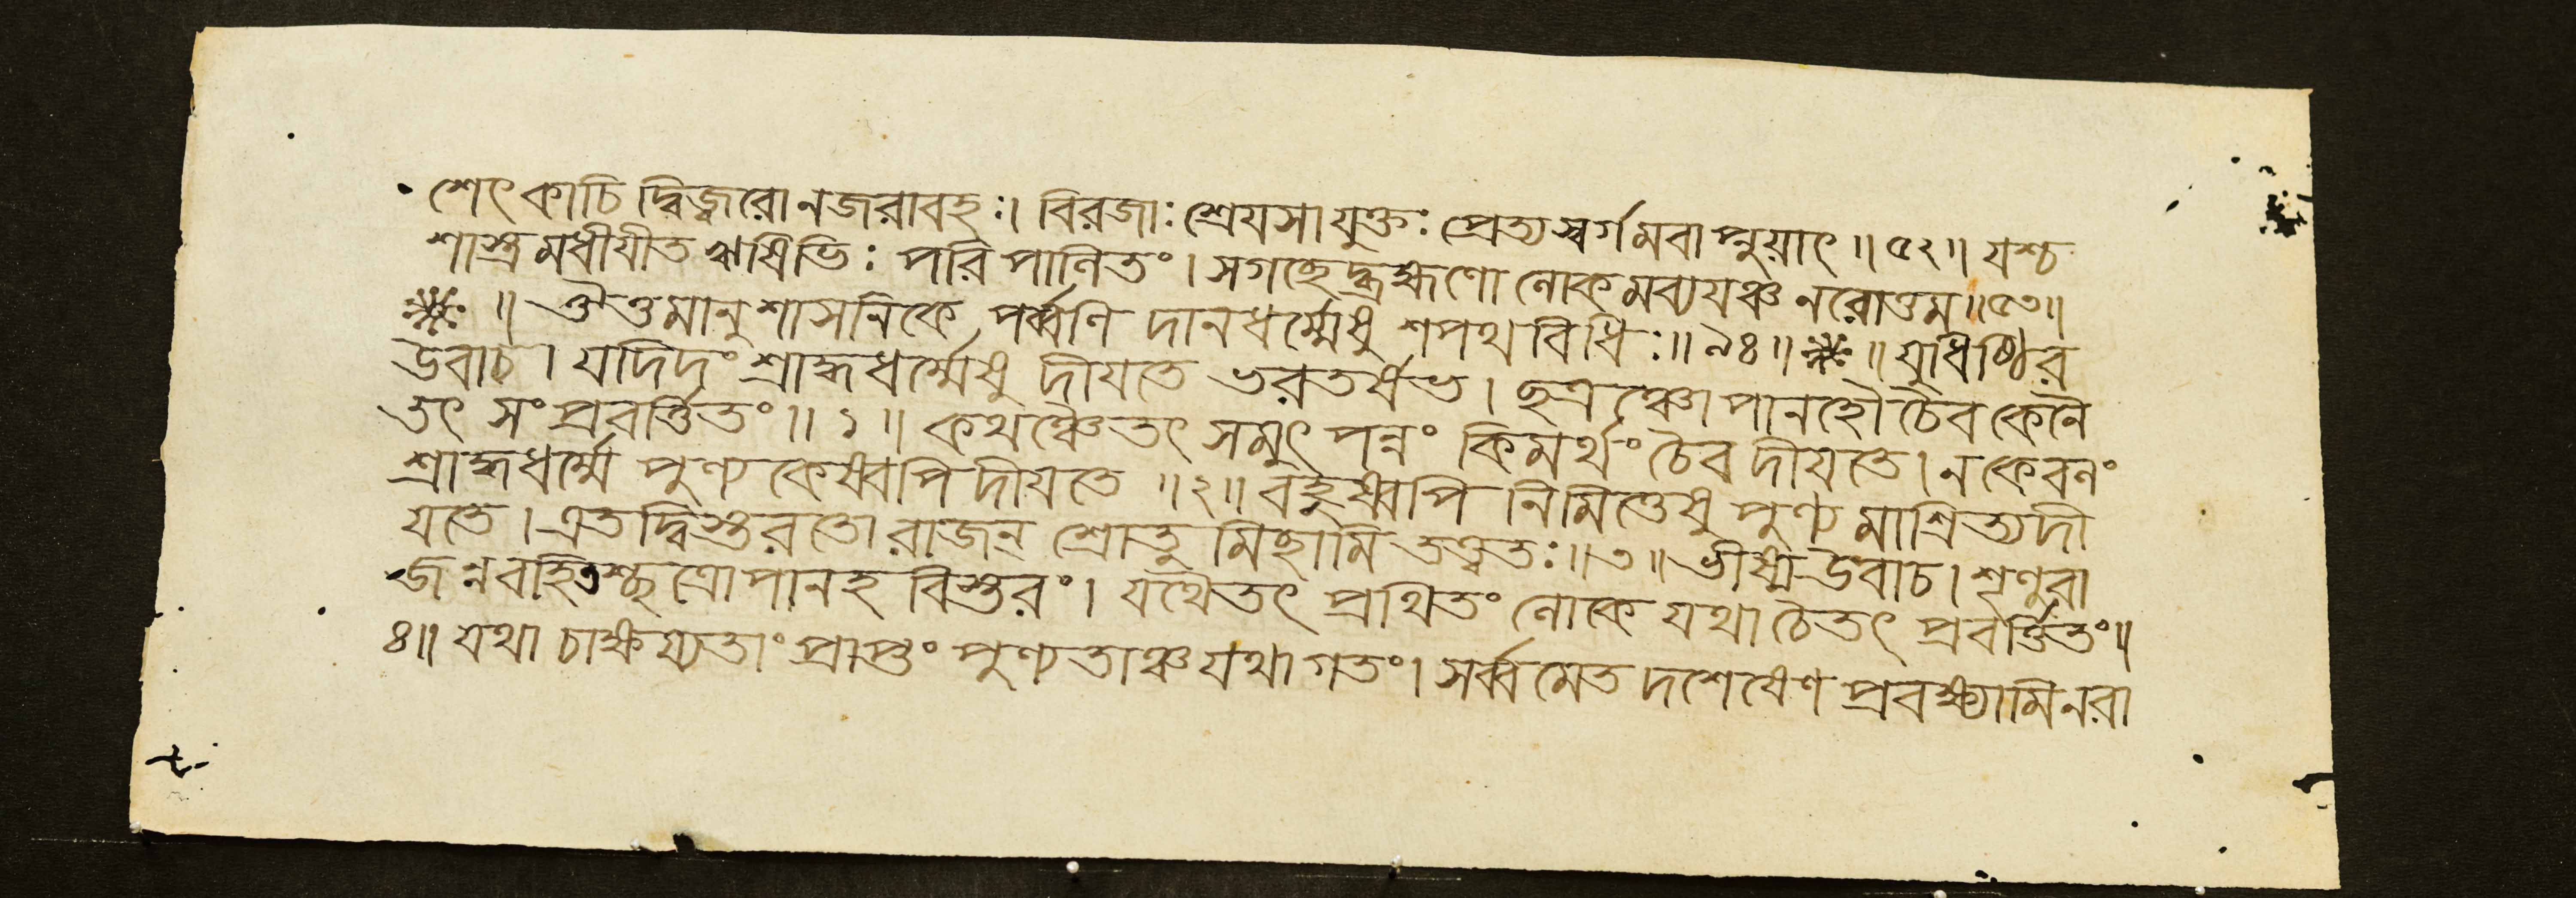 শেৎ কাচিদ্বিজ্বরো নজরাবহঃ। বিরজাঃ শ্রেযসাযুক্তঃ প্রেত্যস্বর্গমবাপ্নুয়াৎ॥৫২॥ যশ্চ
শাস্ত্রমধীযীত ঋষিভিঃ পরিপালিতং। সগচ্ছেদ্ব্রহ্মণো লোকমব্যযঞ্চ নরোত্তম॥৫৩॥
॥ ঔত্তমানুশাসনিকে পর্ব্বণি দানধর্ম্মেষু শপথবিধিঃ॥৯৪॥ ॥ যুধিষ্ঠির
উবাচ। যদিদং শ্রাদ্ধধর্ম্মেষু দীযতে ভরতর্ষভ। ছত্রঞ্চোপানহৌ চৈব কেনৈ
তৎ সংপ্রবর্ত্তিতং॥১॥ কথঞ্চৈতৎ সমুৎপন্নং কিমর্থং চৈব দীযতে। ন কেবলং
শ্রাদ্ধধর্ম্মে পুণ্যকেষ্বপি দীযতে॥২॥ বহুষ্বপি নিমিত্তেষু পুণ্যমাশ্রিত্য দী
যতে। এতদ্বিস্তরতো রাজন্ শ্রোতুমিচ্ছামি তত্ত্বতঃ॥৩॥ ভীষ্ম উবাচ। শৃণু রা
জন্নবহিতশ্ছত্রোপানহ বিস্তরং। যথৈতৎ প্রথিতং লোকে যথা চৈতৎ প্রবর্ত্তিতং॥
৪॥ যথা চাক্ষয্যতাং প্রাপ্তং পুণ্যতাঞ্চ যথাগতং। সর্ব্বমেতদশেষেণ প্রবক্ষ্যামি নরা